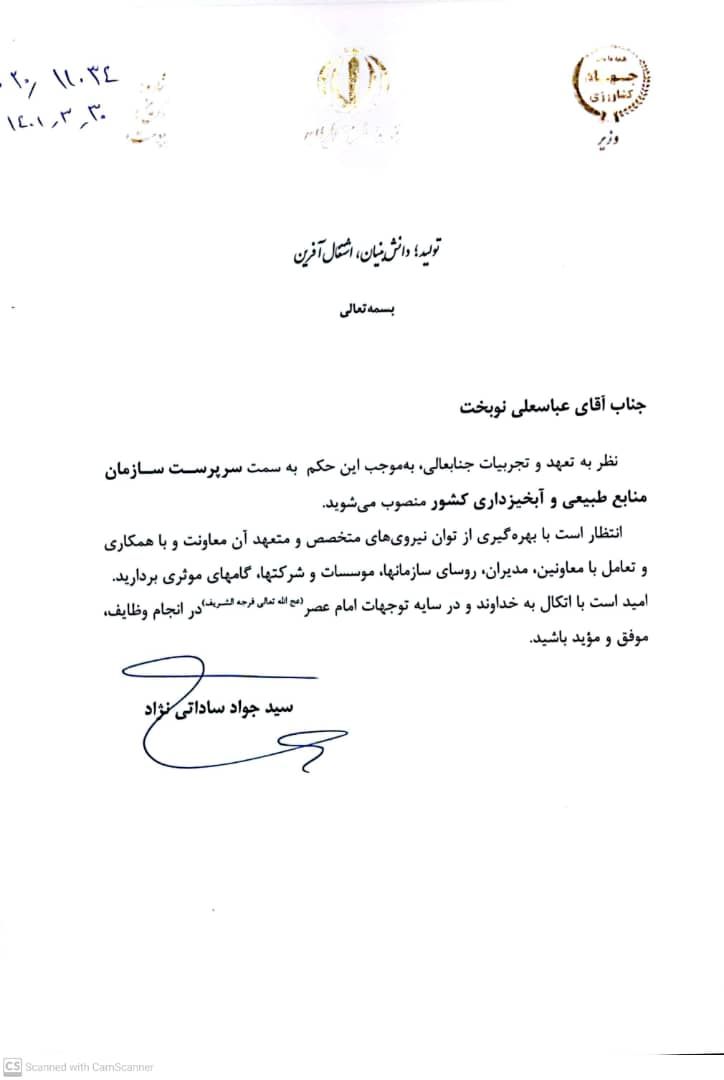 جهاد
کشاورزی
وزیر
۲۰/ ۱۱۰۳۴
۱۴۰۱٫۳٫۳۰
تولید؛ دانش‌بنیان، اشتغال‌آفرین
بسمه‌تعالی
جناب آقای عباسعلی نوبخت
نظر به تعهد و تجربیات جنابعالی، به‌موجب این حکم به سمت سرپرست سازمان
منابع طبیعی و آبخیزداری کشور منصوب می‌شوید.
انتظار است با بهره‌گیری از توان نیروی‌های متخصص و متعهد آن معاونت و با همکاری
و تعامل با معاونین، مدیران، روسای سازمانها، موسسات و شرکتها، گامهای موثری بردارید.
امید است با اتکال به خداوند و در سایه توجهات امام عصر(عج الله تعالی فرجه الشریف)در انجام وظایف،
موفق و مؤید باشید.
سید جواد ساداتی نژاد
CS Scanned with CamScanner